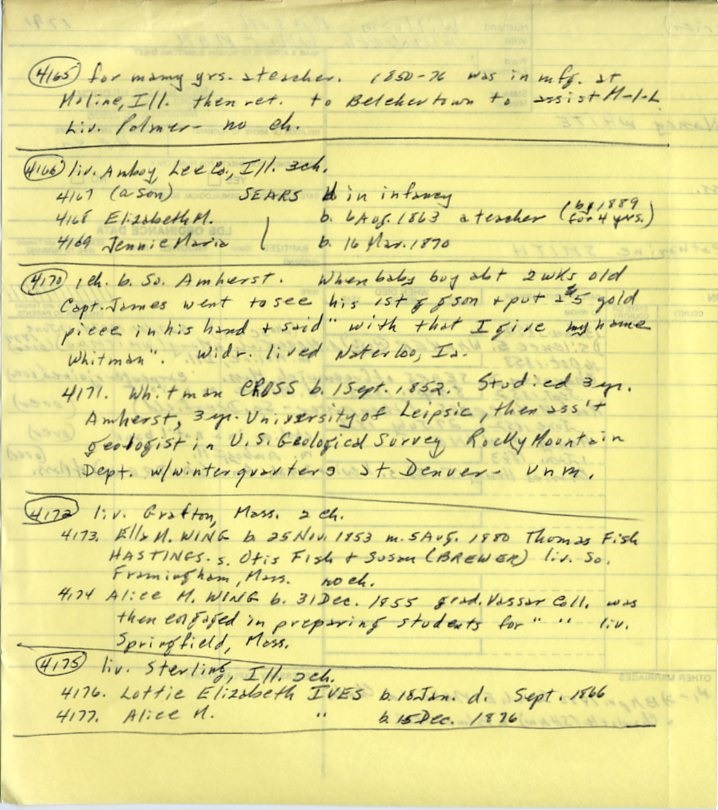 4165 for many yrs. a teacher. 1850-76 was in mfg. at
Moline, Ill. then ret. to Belchertown to assist M-I-L
Liv. Palmer - no ch.
4166 liv. Amboy, Lee Co., Ill. 3ch.
4167 (a son) SEARS d in infancy
4168 Elizabeth M. b. 6 Aug. 1863 a teacher (by 1889
for 4 yrs.)
4169 Jennie Maria b. 16 Mar. 1870
4170 1 ch. b. So. Amherst. When baby boy abt 2 wks old
Capt. James went to see his 1st g gson + put a $5 gold
piece in his hand + said "with that I give my name
Whitman". Widr. lived Waterloo, Ia.
4171. Whitman CROSS b. 1 Sept. 1852. Studied 3 yr.
Amherst, 3 yr. University of Leipsic, then ass't
geologist in U.S. Geological Survey Rocky Mountain
Dept. w/winter quarters at Denver - unm.
4172 liv. Grafton, Mass. 2 ch.
4173. Ella M. WING b. 25 Nov. 1853 m. 5 Aug. 1880 Thomas Fish
HASTINGS. s. Otis Fish + Susan (BREWER) liv. So.
Framingham, Mass. no ch.
4174 Alice M. WING b. 31 Dec. 1855 grad. Vassar Coll. was
then engaged in preparing students for " " liv.
Springfield, Mass.
4175 liv. Sterling, Ill. 2ch.
4176. Lottie Elizabeth IVES b. 18 Jan. d. Sept. 1866
4177. Alice M. " b. 15 Dec. 1876